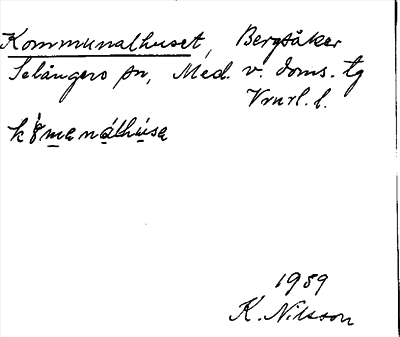 Kommunalhuset, Bergsåker
Selångers sn, Med. v. doms. tg
Vrurl. l.
kômanálhúsa
1959
K. Nilsson